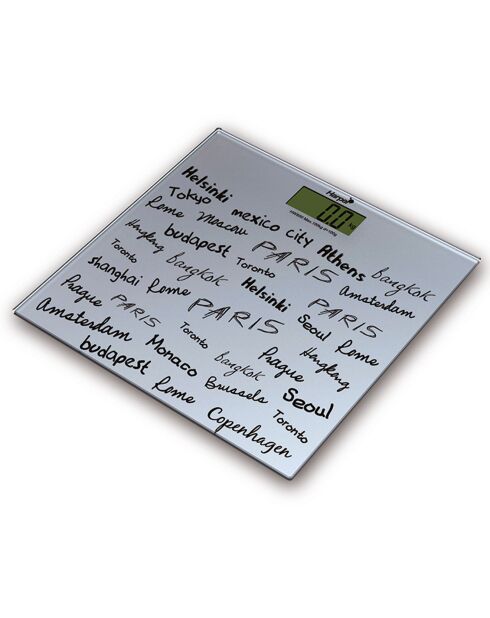 Harper
0.0 kg
Helsinki
Tokyo
Rome Moscow mexico city Athens Bangkok
Hongkong budapest PARIS Amsterdam
Toronto Bangkok Toronto
shanghai Rome Helsinki PARIS
Prague PARIS PARIS Seoul Rome
Amsterdam Toronto Prague Hongkong
budapest Monaco Bangkok
Rome Brussels Seoul
Toronto
Copenhagen